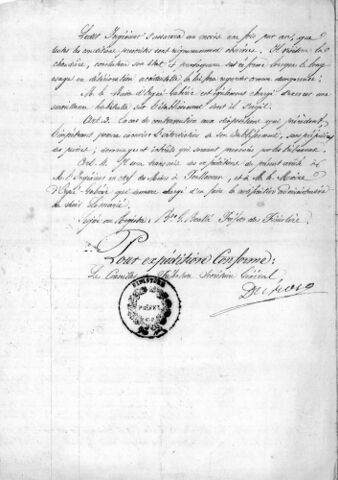 Ledit Ingénieur s'assurera au moins une fois par an, que
toutes les conditions prescrites sont rigoureusement observées. Il visitera la
chaudière, constatera son état et provoquera sa réforme lorsque le long
usage ou détérioration accidentelle la lui fera regarder comme dangereuse.
M. le Maire d'Ergué-Gabéric est également chargé d'exercer une
surveillance habituelle sur l'établissement dont il s'agit.
Art. 3. En cas de contravention aux dispositions qui précèdent,
l'impétrant pourra encourir l'interdiction de son établissement, sans préjudice
des peines, dommages et intérêts qui seraient prononcés par les tribunaux.
Art. 4. Il sera transmis des expéditions du présent arrêté à
M. l'Ingénieur en chef des Mines à et à M. le Maire
d'Ergué-Gabéric qui demeure chargé d'en faire la notification administrative
Signé au Registre: Préfet du Finistère
Pour expédition Conforme:
Le Conseiller de Préfecture Secrétaire Général
FINISTÈRE
PRÉFET